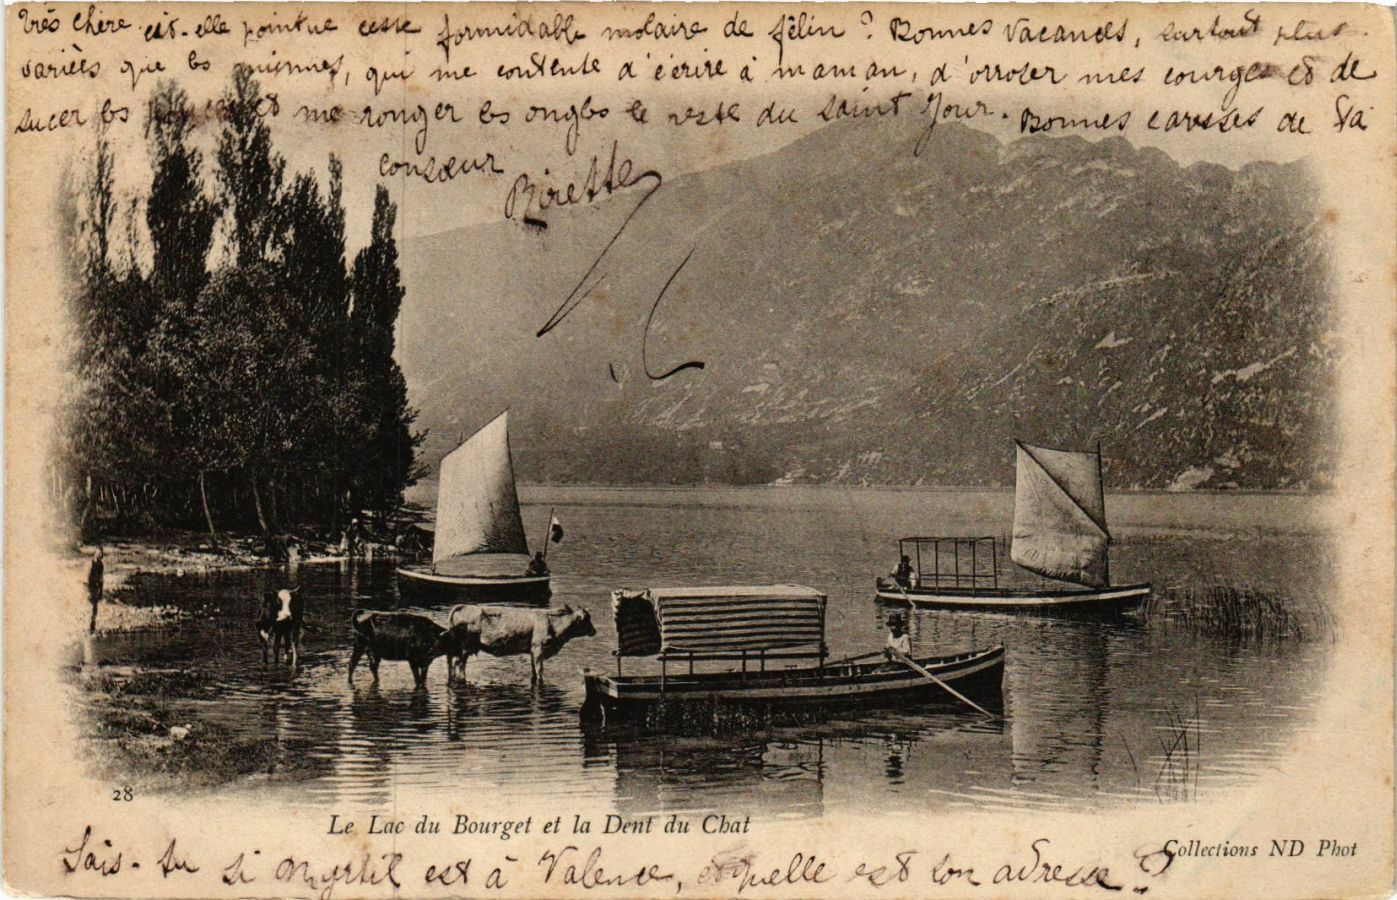 Très chère est-elle pointue cette formidable molaire de félin? Bonnes Vacances, surtout plus
variées que les miennes, qui me contente d'écrire à maman, d'arroser mes courges et de
sucer les et me ronger les ongles le reste du saint Jour. Bonnes caresses de Ta
consœur
Rirette
28
Le Lac du Bourget et la Dent du Chat
Collections ND Phot
Sais-tu si Myrtil est à Valence, et quelle est son adresse?